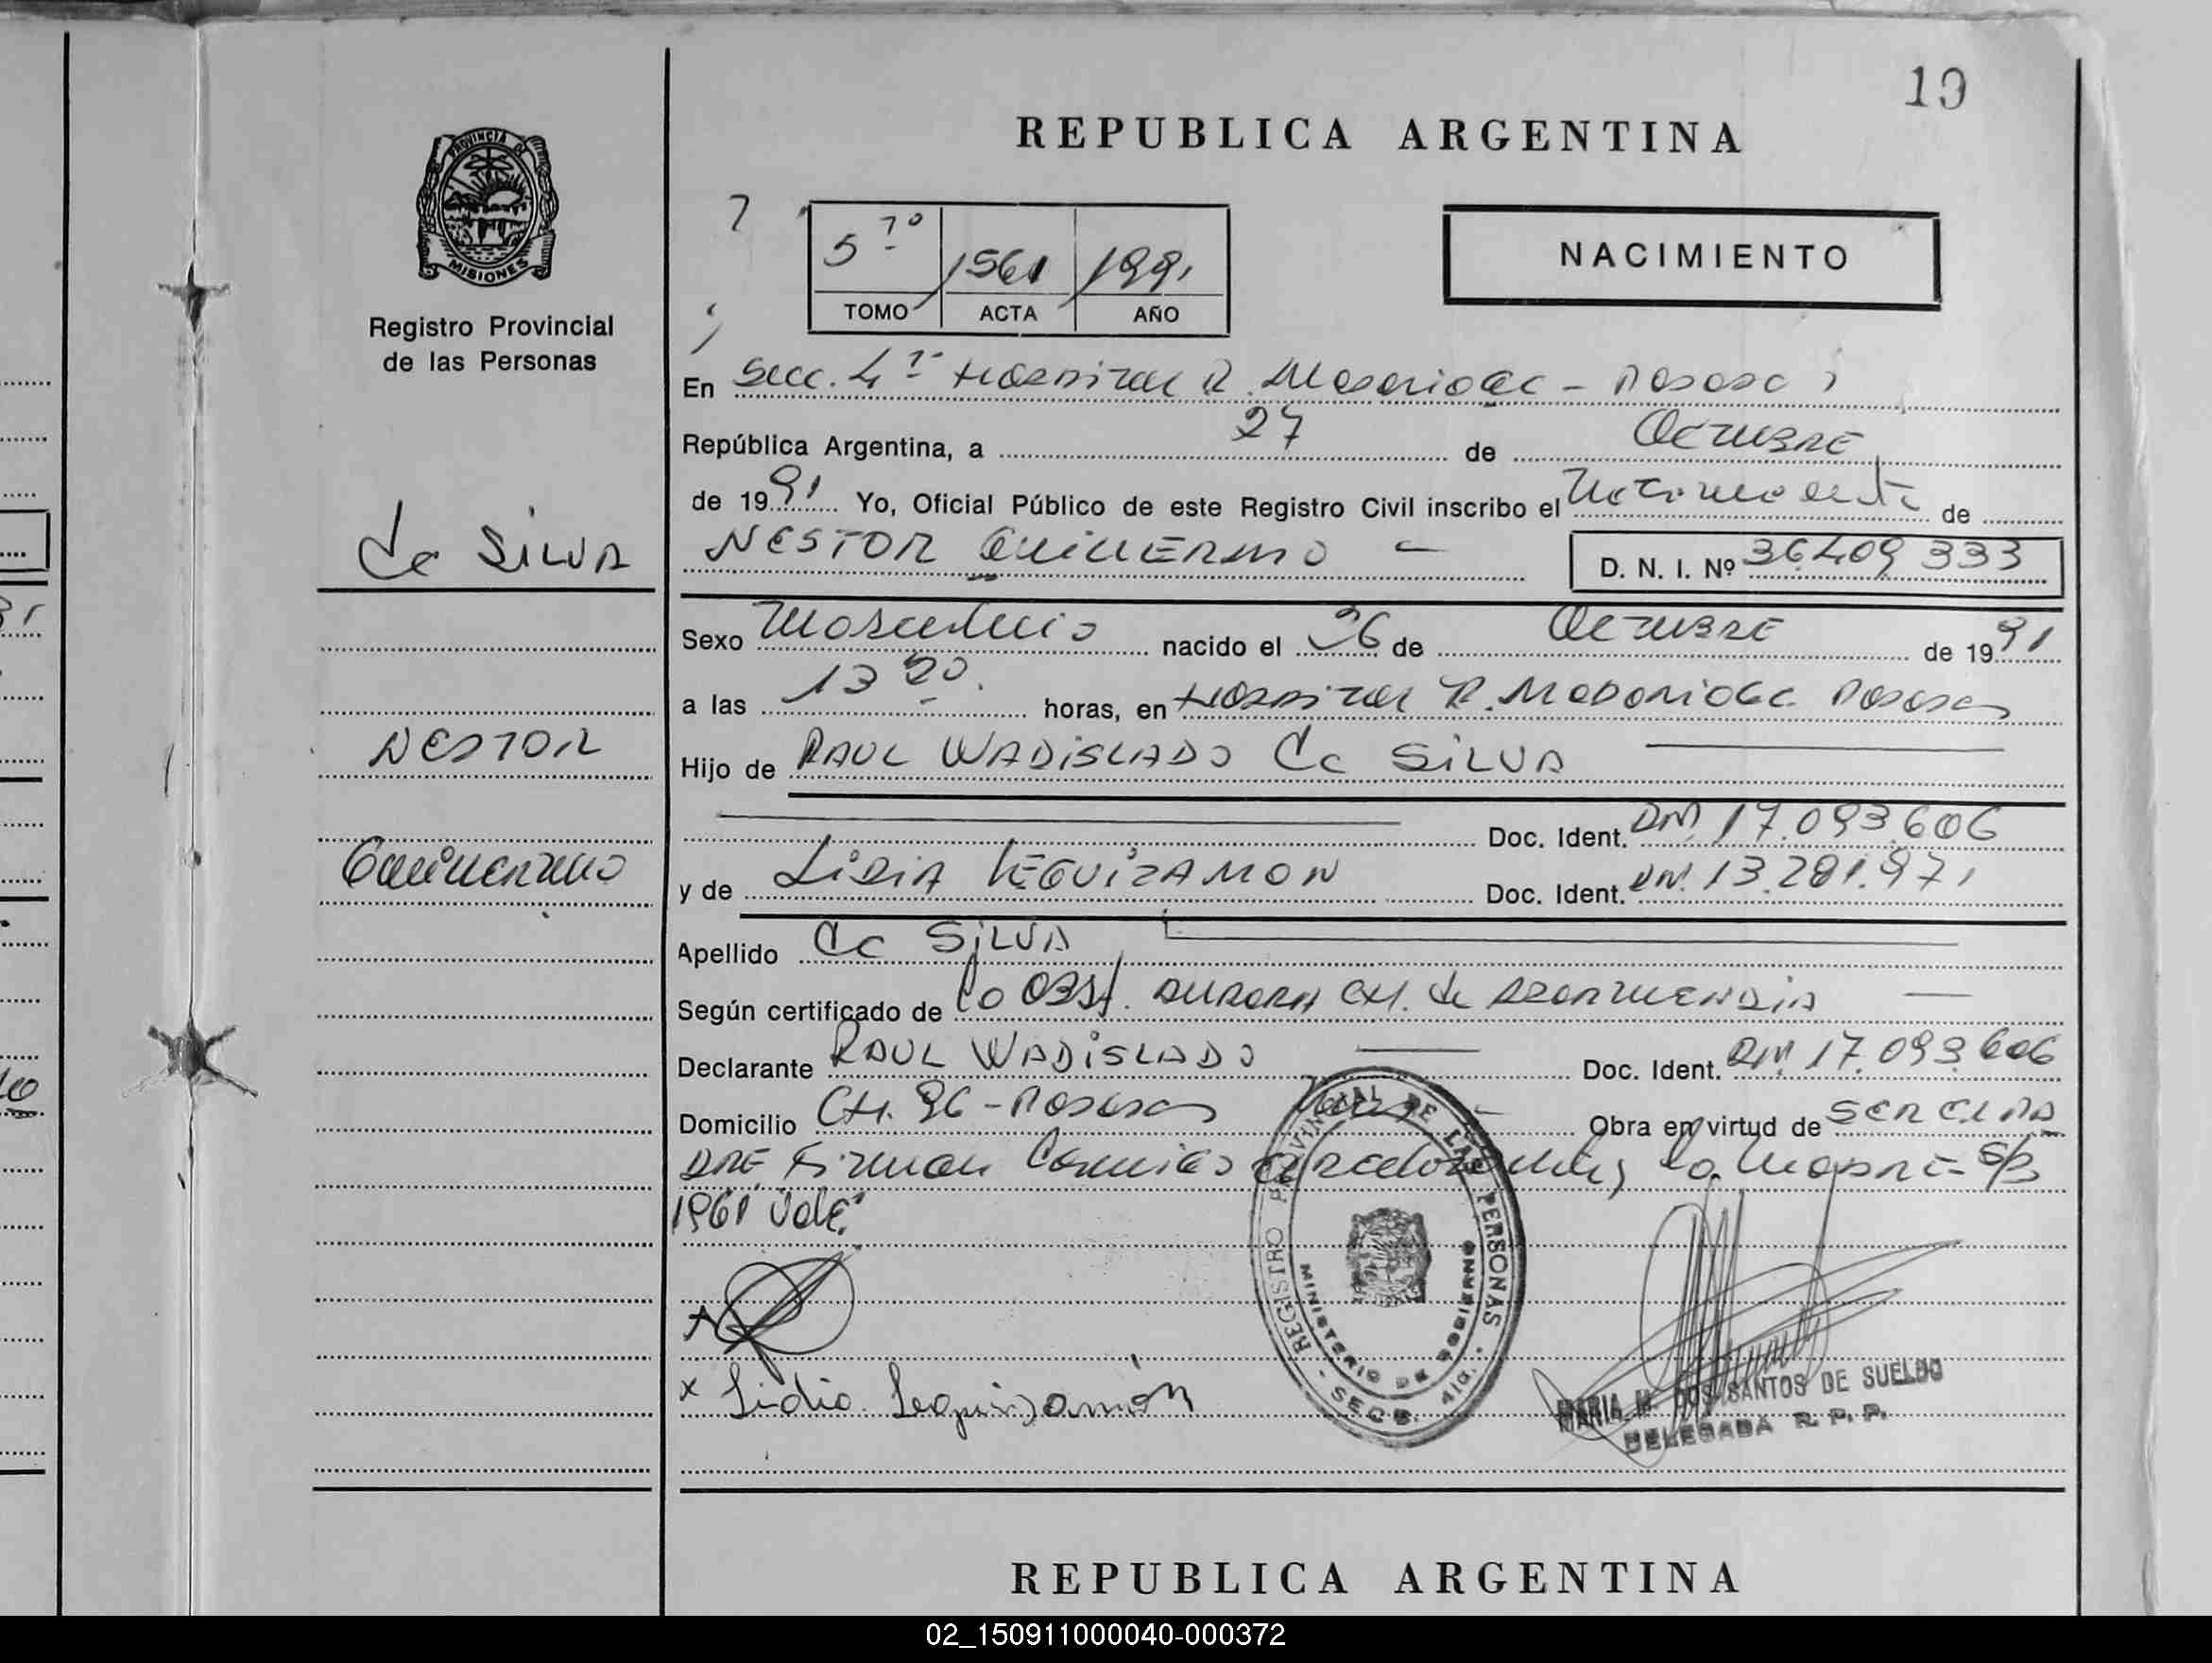 19
REPUBLICA ARGENTINA
PROVINCIA DE
MISIONES
Registro Provincial
de las Personas
NACIMIENTO
5º 1561 1991
TOMO ACTA AÑO
En Secc. 4ª Hospital R. Madariaga - Posadas
República Argentina, a 27 de Octubre
de 1991 Yo, Oficial Público de este Registro Civil inscribo el Nacimiento de
de SILVA
NESTOR GUILLERMO D. N. I. Nº 36.409.333
Sexo Masculino nacido el 26 de Octubre de 1991
a las 13 20 horas, en Hospital R. Madariaga Posadas
NESTOR
Hijo de RAUL WADISLADO de SILVA
Doc. Ident. DNI 17.093.606
Guillermo
y de LIDIA LEGUIZAMON Doc. Ident. DNI. 13.281.971
Apellido de SILVA
Según certificado de la OBST. AURORA CH. de
Declarante RAUL WADISLADO Doc. Ident. DNI. 17.093.606
Domicilio CH. 96 - Posadas Obra en virtud de SER EL PA
DRE. Firman la Madre - S/B
1961 Vale.
x Lidia Leguizamón
REGISTRO PROVINCIAL DE LAS PERSONAS
MINISTERIO DE GOBIERNO
SECC. 4ta.
MARIA M. DOS SANTOS DE SUELDO
DELEGADA R. P. P.
REPUBLICA ARGENTINA
02_150911000040-000372